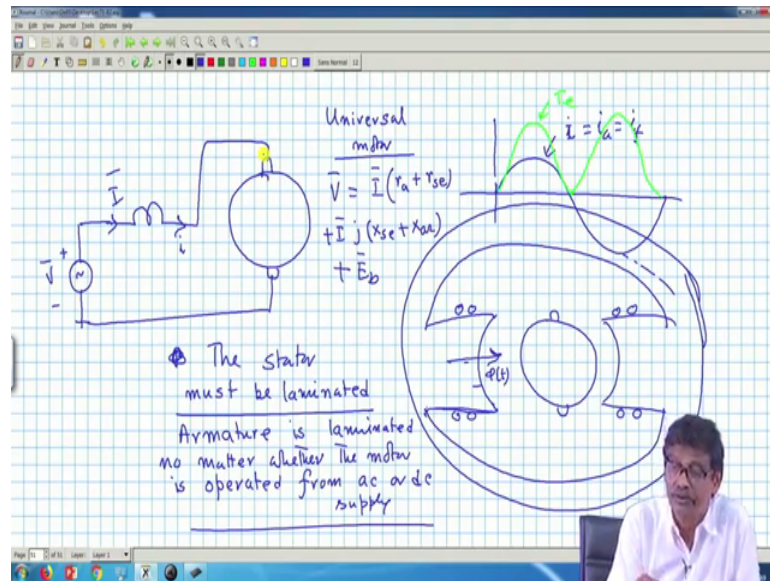 Xournal - C:\Users\
File Edit View Journal Tools Options Help
Sans Normal 12
Universal
motor
V̄ = Ī (ra + rse)
+ Ī j (xse + xar)
+ Ēb
Ī
i
V̄
+
~
-
Te
i = ia = if
Φ(t)
The stator
must be laminated
Armature is laminated
no matter whether the motor
is operated from ac or dc
supply
Page 51 of 51 Layer: Layer 1